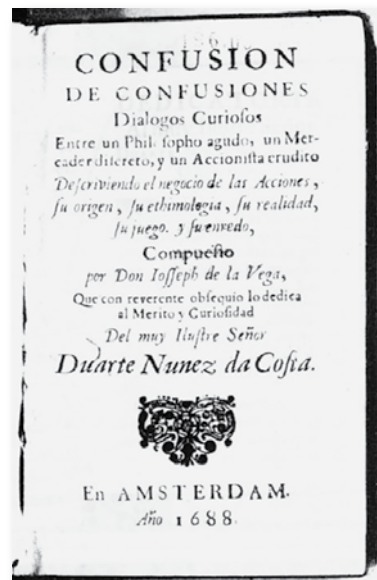 CONFUSION
DE CONFUSIONES
Dialogos Curiosos
Entre un Phil sopho agudo, un Mer-
cader discreto, y un Accionista erudito
Descriviendo el negocio de las Acciones,
su origen, su ethimologia, su realidad,
su juego. y su enredo,
Compuesto
por Don Iosseph de la Vega,
Que con reverente obsequio lo dedica
al Merito y Curiosidad
Del muy Ilustre Señor
Duarte Nunez da Costa.
En AMSTERDAM.
Año 1688.